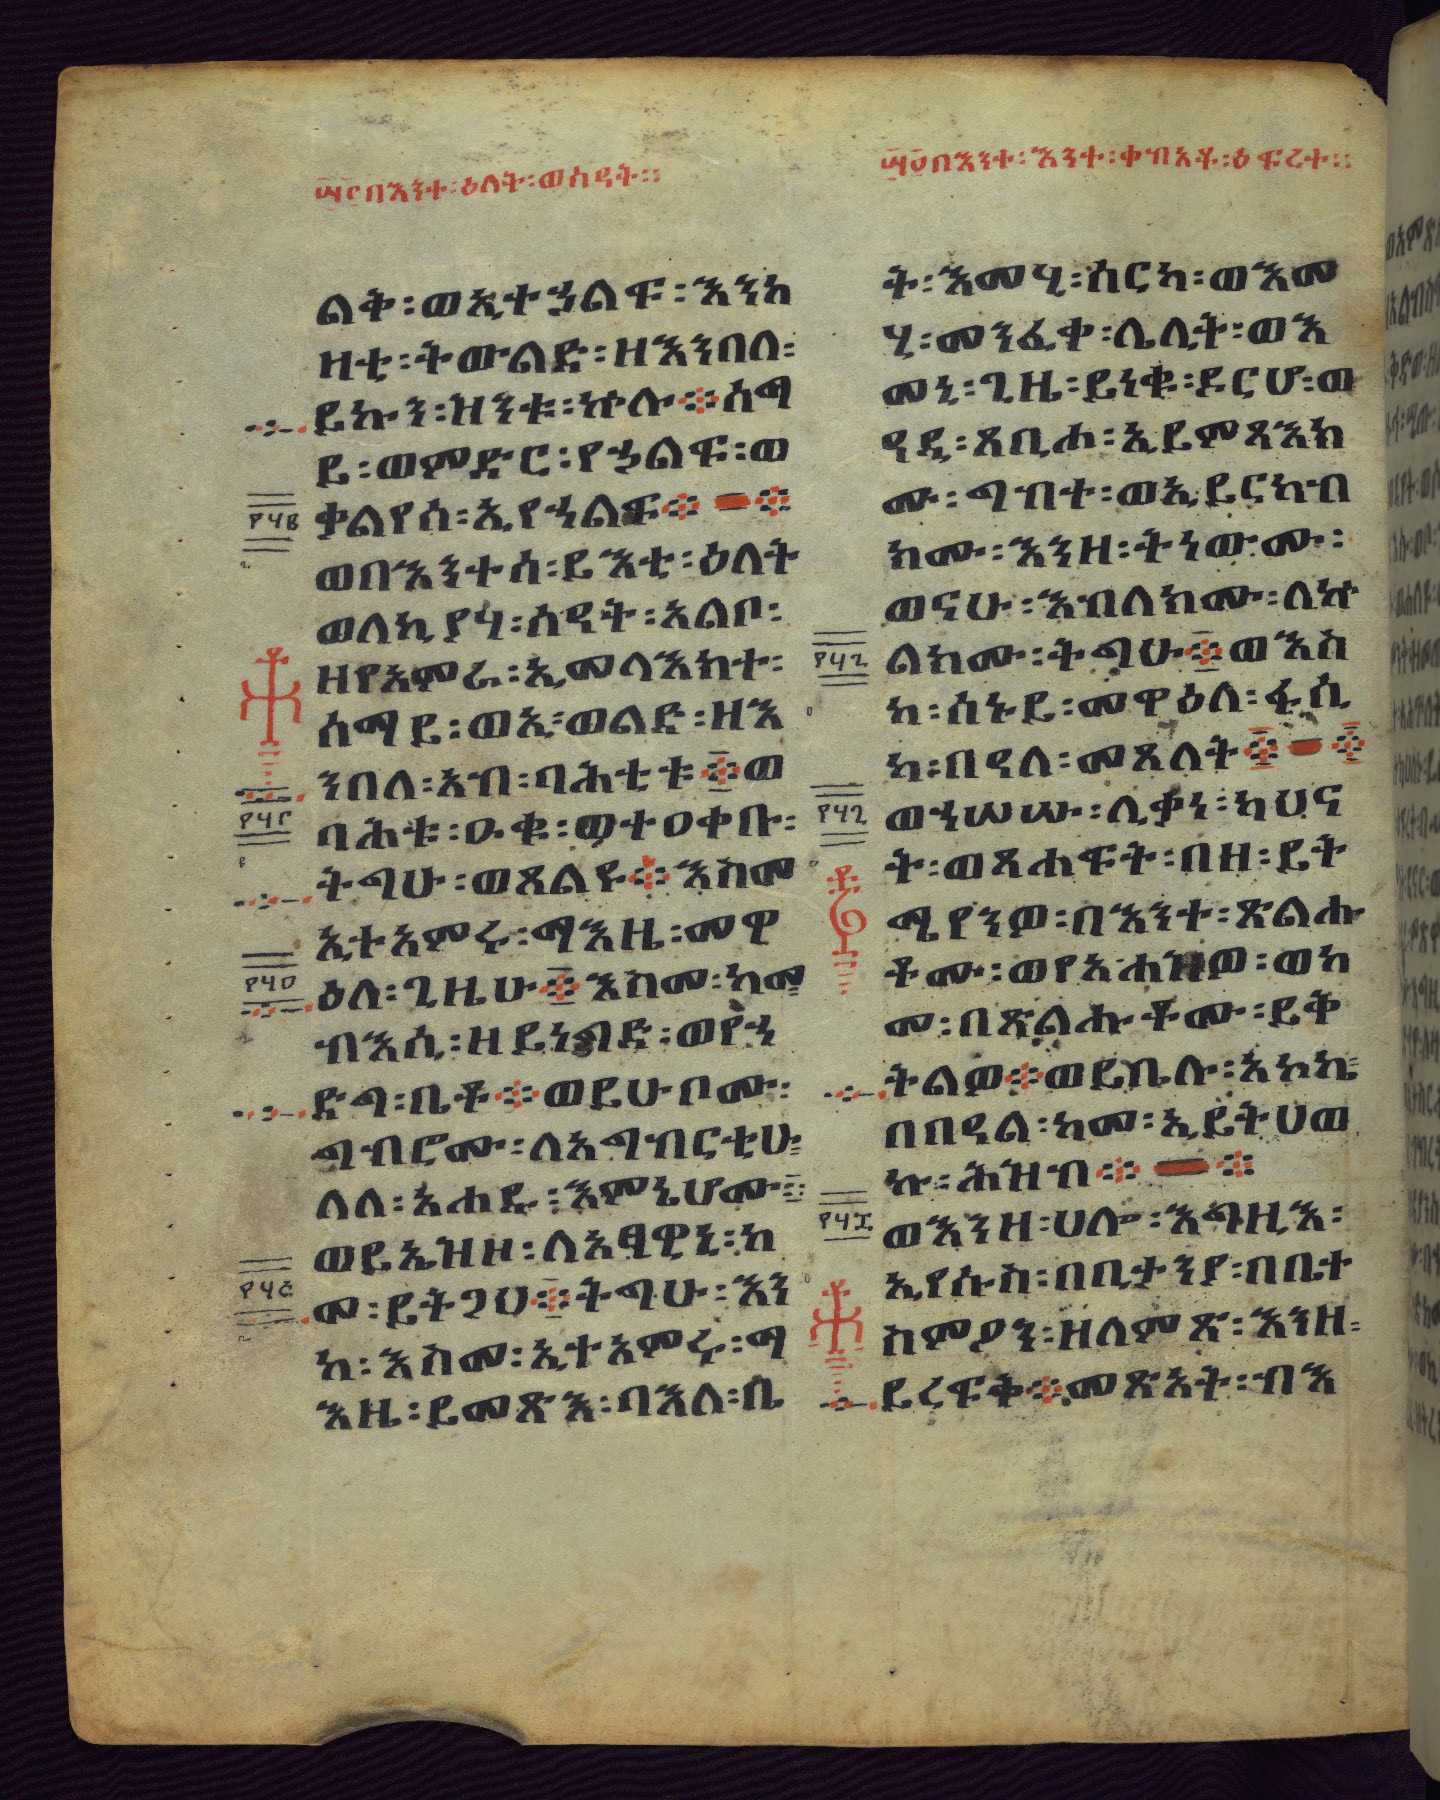 ፵፫ በእንተ፡ዕለት፡ወሰዓት፡፡
ልቅ፡ወኢተኃልፍ፡እንከ
ዛቲ፡ትውልድ፡ዘእንበለ፡
ይኩን፡ዝንቱ፡ኵሉ፨ሰማ
ይ፡ወምድር፡የኃልፍ፡ወ
ቃልየሰ፡ኢየኃልፍ፨
ወበእንተሰ፡ይእቲ፡ዕለት
ወለኪያሃ፡ሰዓት፡አልቦ፡
ዘየአምራ፡ኢመላእክተ፡
ሰማይ፡ወኢ፡ወልድ፡ዘእ
ንበለ፡አብ፡ባሕቲቱ፨ወ
ባሕቱ፡ዑቁ፡ወተዐቀቡ፡
ትግሁ፡ወጸልዩ፨እስመ
ኢተአምሩ፡ማእዜ፡መዋ
ዕለ፡ጊዜሁ፨እስመ፡ከመ
ብእሲ፡ዘይነግድ፡ወየኀ
ድግ፡ቤቶ፨ወይሁቦሙ፡
ግብሮሙ፡ለአግብርቲሁ፡
ለለ፡አሐዱ፡እምኔሆሙ፡
ወይኤዝዞ፡ለአፃዌኒ፡ከ
መ፡ይትጋህ፨ትግሁ፡እን
ከ፡እስመ፡ኢተአምሩ፡ማ
እዜ፡ይመጽእ፡ባእለ፡ቤ
፵፬ በእንተ፡እንተ፡ቀብአቶ፡ዕፍረተ፡፡
ት፡እመሂ፡ሰርከ፡ወእመ
ሂ፡መንፈቀ፡ሌሊት፡ወእ
መኒ፡ጊዜ፡ይነቁ፡ዶርሆ፡ወ
ዓዲ፡ጸቢሐ፡ኢይምጻእክ
ሙ፡ግብተ፡ወኢይርከብ
ክሙ፡እንዘ፡ትነውሙ፡
ወናሁ፡እብለክሙ፡ለኵ
ልክሙ፡ትግሁ፨ወእስ
ከ፡ሰኑይ፡መዋዕለ፡ፋሲ
ካ፡በዓለ፡መጸለት፨
ወኀሠሡ፡ሊቃነ፡ካህና
ት፡ወጸሐፍት፡በዘ፡ይት
ሜየንዎ፡በእንተ፡ጽልሑ
ቶሙ፡ወየአሐዝዎ፡ወከ
መ፡በጽልሑቶሙ፡ይቅ
ትልዎ፨ወይቤሉ፡አኮኬ፡
በበዓል፡ከመ፡ኢይትሀወ
ኩ፡ሕዝብ፨
ወእንዘ፡ሀሎ፡እግዚእ፡
ኢየሱስ፡በቢታንያ፡በቤተ
ስምዖን፡ዘለምጽ፡እንዘ፡
ይረፍቅ፨መጽአት፡ብእ